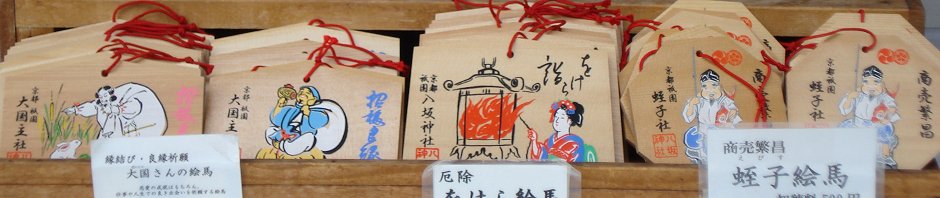 京都祇園
大国主
京都祇園
大国主
招福良縁
をけら詣り
京都祇園
八坂神社
京都祇園
蛭子社
商売繁昌
京都祇園
蛭子社
商売繁昌
縁結び・良縁祈願
大国さんの絵馬
厄除
をけら絵馬
商売繁昌
えびす
蛭子絵馬